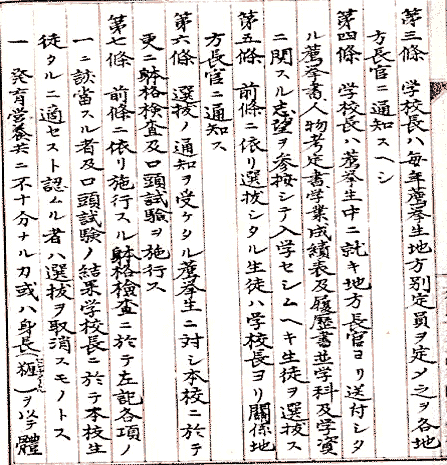 第三條　学校長ハ毎年薦挙生地方別定員ヲ定メ之ヲ各地
方長官ニ通知スヘシ
第四條　学校長ハ薦挙生中ニ就キ地方長官ヨリ送付シタ
ル薦挙書人物考定書学業成績表及履歴書並学科及学資
ニ関スル志望ヲ参按シテ入学セシムヘキ生徒ヲ選抜ス
第五條　前條ニ依リ選抜シタル生徒ハ学校長ヨリ關係地
方長官ニ通知ス
第六條　選抜ノ通知ヲ受ケタル薦挙生ニ対シ本校ニ於テ
更ニ躰格検査及口頭試験ヲ施行ス
第七條　前條ニ依リ施行スル躰格検査ニ於テ左記各項ノ
一ニ該當スル者及口頭試験ノ結果学校長ニ於テ本校生
徒タルニ適セスト認ムル者ハ選抜ヲ取消スモノトス
一　発育営養共ニ不十分ナルカ或ハ身長(糎)ヲ以テ體